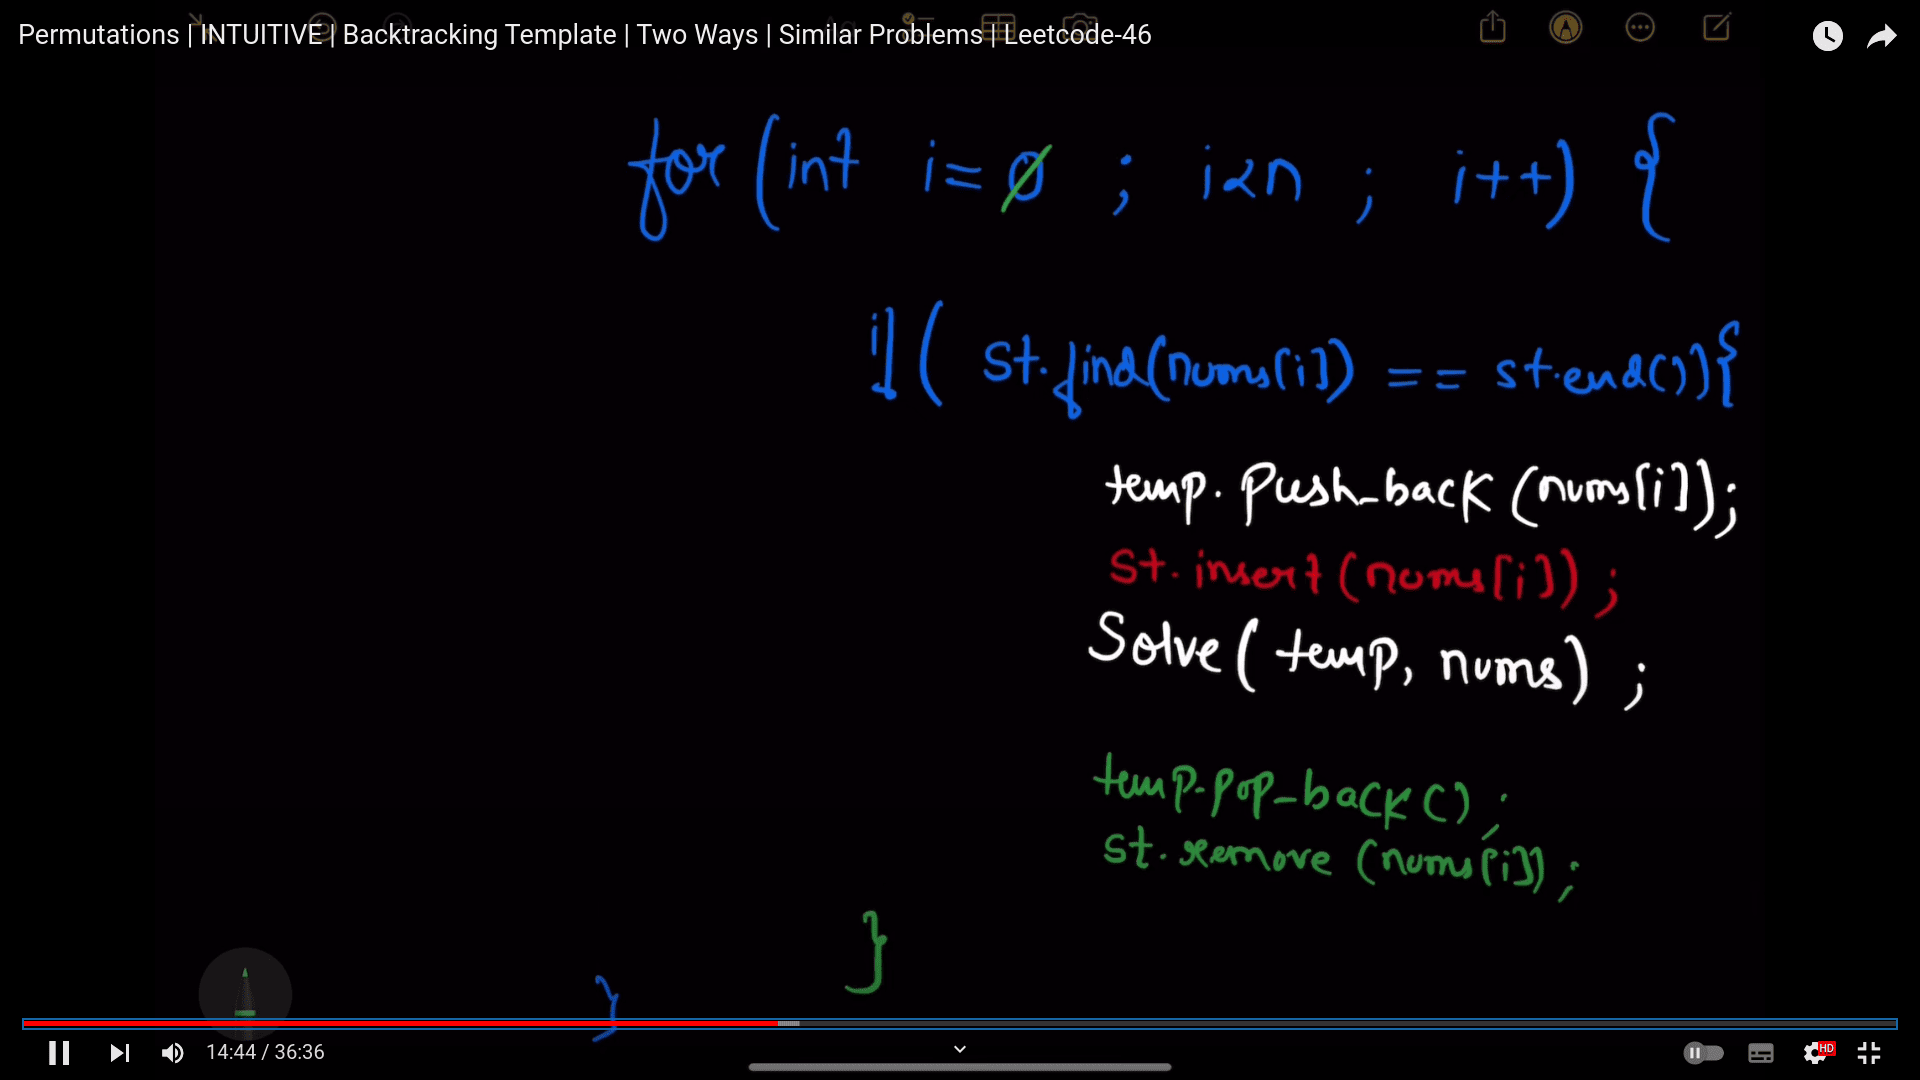 Permutations | INTUITIVE | Backtracking Template | Two Ways | Similar Problems | Leetcode-46
for (int i=0 ; i<n ; i++) {
if ( st.find(nums[i]) == st.end()) {
temp.push_back (nums[i]);
st.insert (nums[i]) ;
Solve ( temp, nums) ;
temp.pop_back () ;
st.remove (nums[i]) ;
}
}
14:44 / 36:36
HD